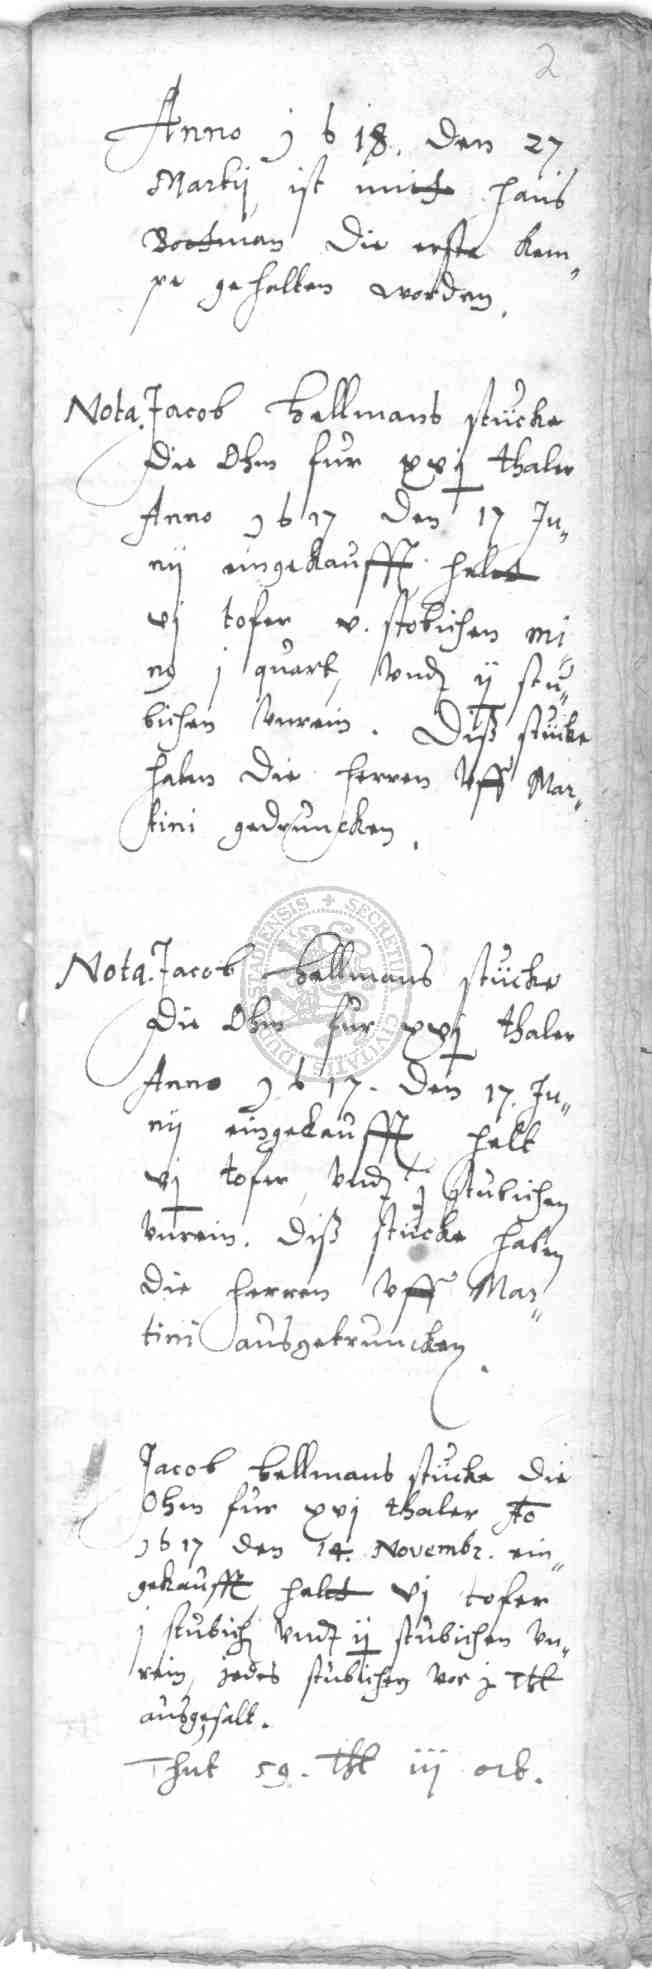 2
Anno 1618. den 27
Martij ist mitt Hans
Bootman die erste kem„
pe gehalten worden.
Nota. Jacob Hellmans stücke
die Ohm für xvj thaler
Anno 1617 den 17 Ju„
nij eingekaufft, haltt
vj tofer v. stobichen mi„
ng j quart, vndt ij stu„
bichen vnrein. Diß stücke
haben die Herren vff Mar„
tini gedruncken.
Nota. Jacob Hellmans stücke
die Ohm für xvj thaler
Anno 1617. den 17. Ju„
nij eingekaufft, helt
vj tofer, vndt j stubichen
vnrein. diß stücke haben
die Herren vff Mar„
tini ausgetruncken.
SECRETUM CIVITATIS DUDERSTADIENSIS
Jacob Hellmans stücke die
Ohm für xvj thaler Ao
1617 den 14. Novembr. ein„
gekaufft, haltt vj tofer
j stubich vndt ij stubichen vn„
rein, jedes stubichen vor j thl
ausgehalt.
Thut 59. Thl iij ort.